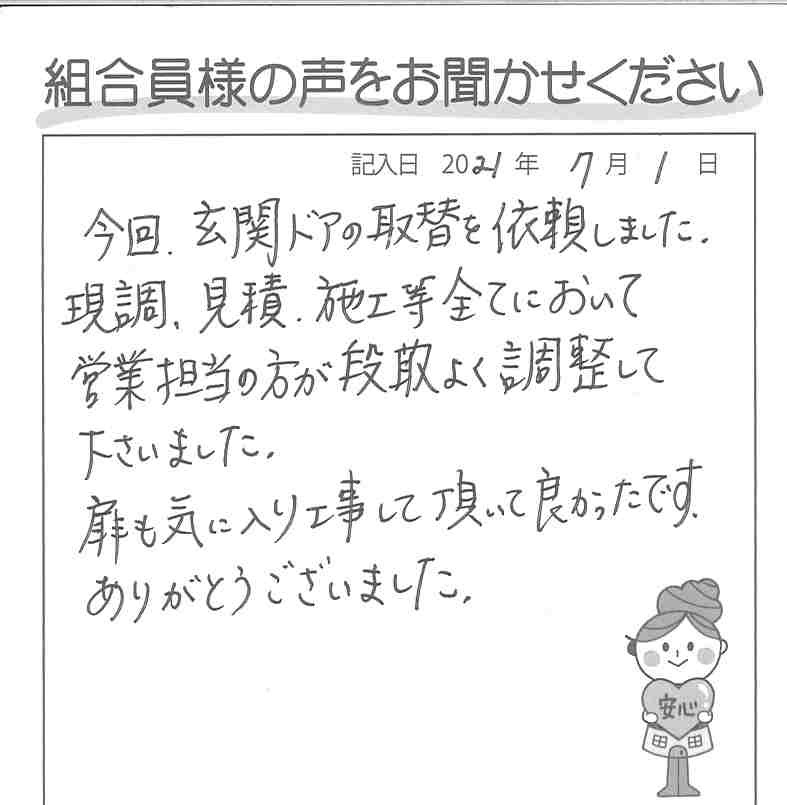 組合員様の声をお聞かせください
記入日 2021年 7月 1日
今回、玄関ドアの取替を依頼しました。
現調、見積、施工等全てにおいて
営業担当の方が段取よく調整して
下さいました。
扉も気に入り工事して頂いて良かったです。
ありがとうございました。
安心